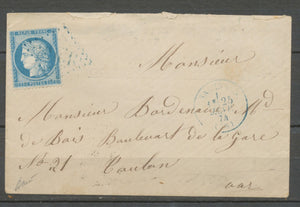 REPUB. FRANC.
Monsieur
Monsieur Bordenave Md
de Bois Boulevard de la Gare
No 21 Toulon
Var
25
74